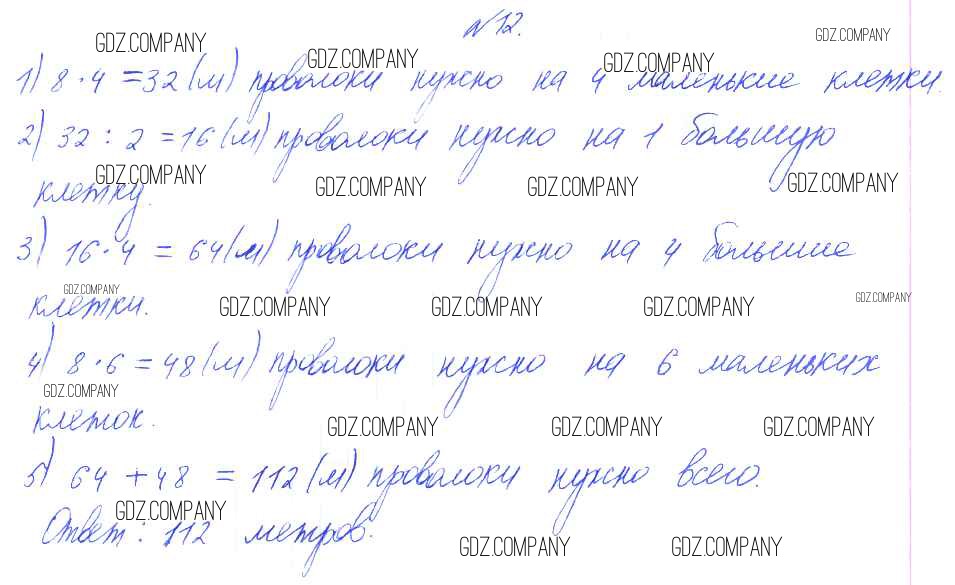 №12.
GDZ.COMPANY GDZ.COMPANY
GDZ.COMPANY GDZ.COMPANY
1) 8 · 4 = 32 (м) проволоки нужно на 4 маленькие клетки.
2) 32 : 2 = 16 (м) проволоки нужно на 1 большую
GDZ.COMPANY GDZ.COMPANY GDZ.COMPANY GDZ.COMPANY
клетку.
3) 16 · 4 = 64 (м) проволоки нужно на 4 большие
GDZ.COMPANY GDZ.COMPANY
клетки. GDZ.COMPANY GDZ.COMPANY GDZ.COMPANY
4) 8 · 6 = 48 (м) проволоки нужно на 6 маленьких
GDZ.COMPANY
клеток. GDZ.COMPANY GDZ.COMPANY GDZ.COMPANY
5) 64 + 48 = 112 (м) проволоки нужно всего.
GDZ.COMPANY
Ответ: 112 метров.
GDZ.COMPANY GDZ.COMPANY